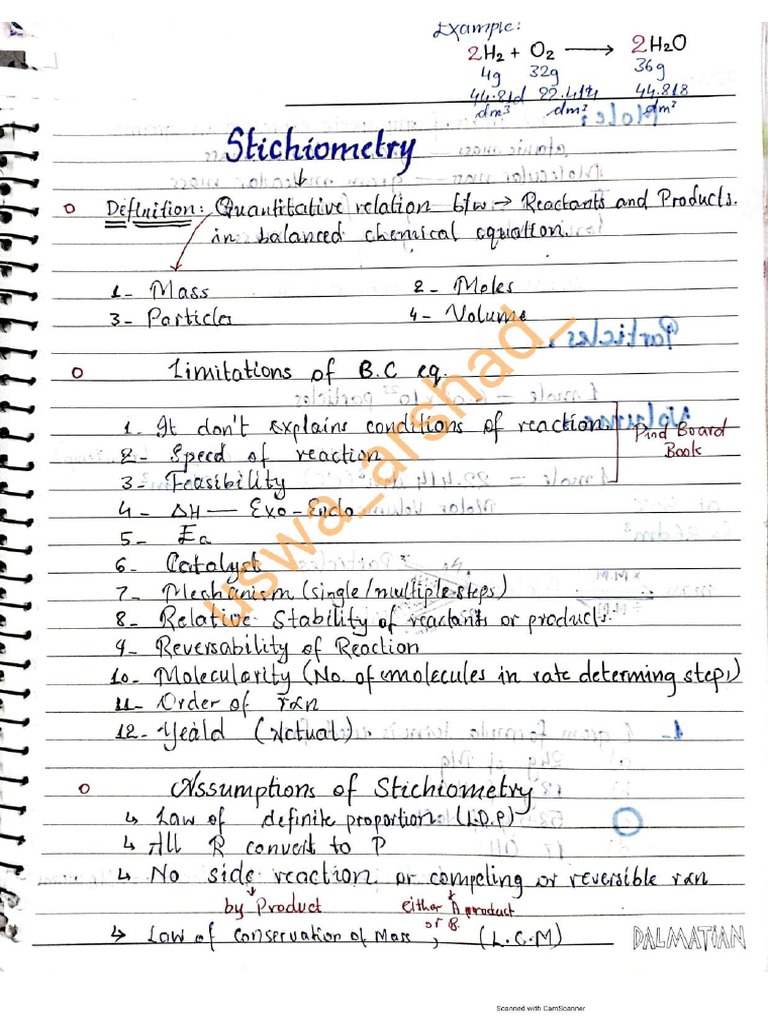 Example:
2H₂ + O₂ ⟶ 2H₂O
4g 32g 36g
dm³ dm³ dm³
Stichiometry
Definition: Quantitative relation b/w → Reactants and Products.
in balanced chemical equation.
1- Mass 2- Moles
3- Particles 4- Volume
Limitations of B.C eq.
1. It don't explains conditions of reaction.
2- Speed of reaction
3- Feasibility
Pind Board
Book
4- ΔH — Exo-Endo
5- Ea
6- Catalyst
7- Mechanism (single/multiple steps)
8- Relative Stability of reactants or products.
9- Reversability of Reaction
10- Molecularity (No. of molecules in rate determining step)
11- Order of rxn
12- Yeald (Actual)
Assumptions of Stichiometry
↳ Law of definite proportion (L.D.P)
↳ All R convert to P
↳ No side reaction or competing or reversible rxn
by Product either A product
or B.
↳ Law of conservation of Mass, (L.C.M)
DALMATIAN
uswa_arshad_
Scanned with CamScanner